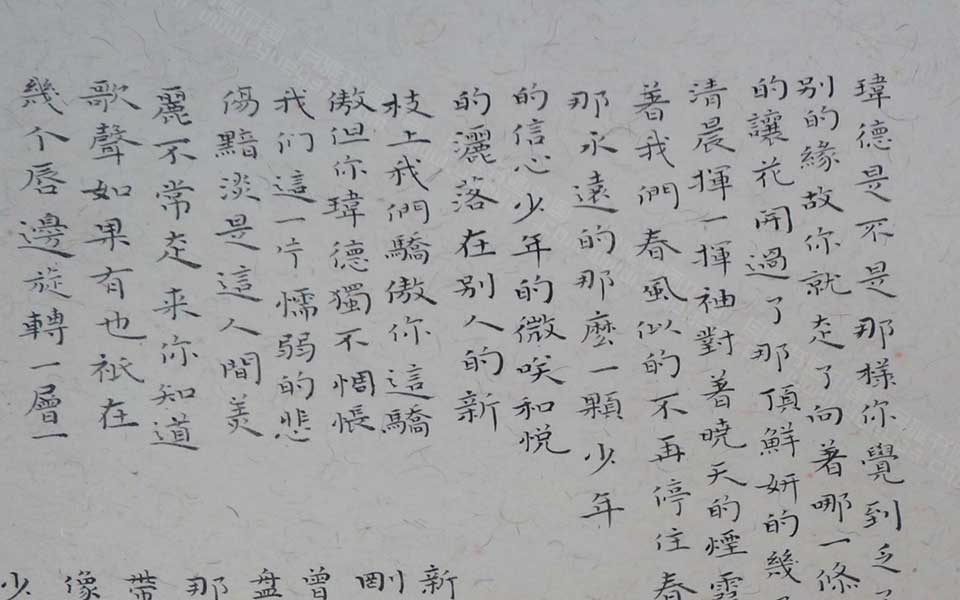 瑋德是不是那樣你覺到乏
别的緣故你就走了向着哪一條
的讓花開過了那頂鮮妍的幾
清晨揮一揮袖對著曉天的煙雲
著我們春風似的不再停住春
那永遠的那麼一顆少年
的信心少年的微咲和悦
的灑落在别人的新
枝上我們驕傲你這驕
傲但你瑋德獨不惆悵
我们這一片懦弱的悲
傷黯淡是這人間美
麗不常走来你知道
歌聲如果有也祇在
幾个唇邊旋轉一層一
新
剛
曾
盘
那
带
像
少